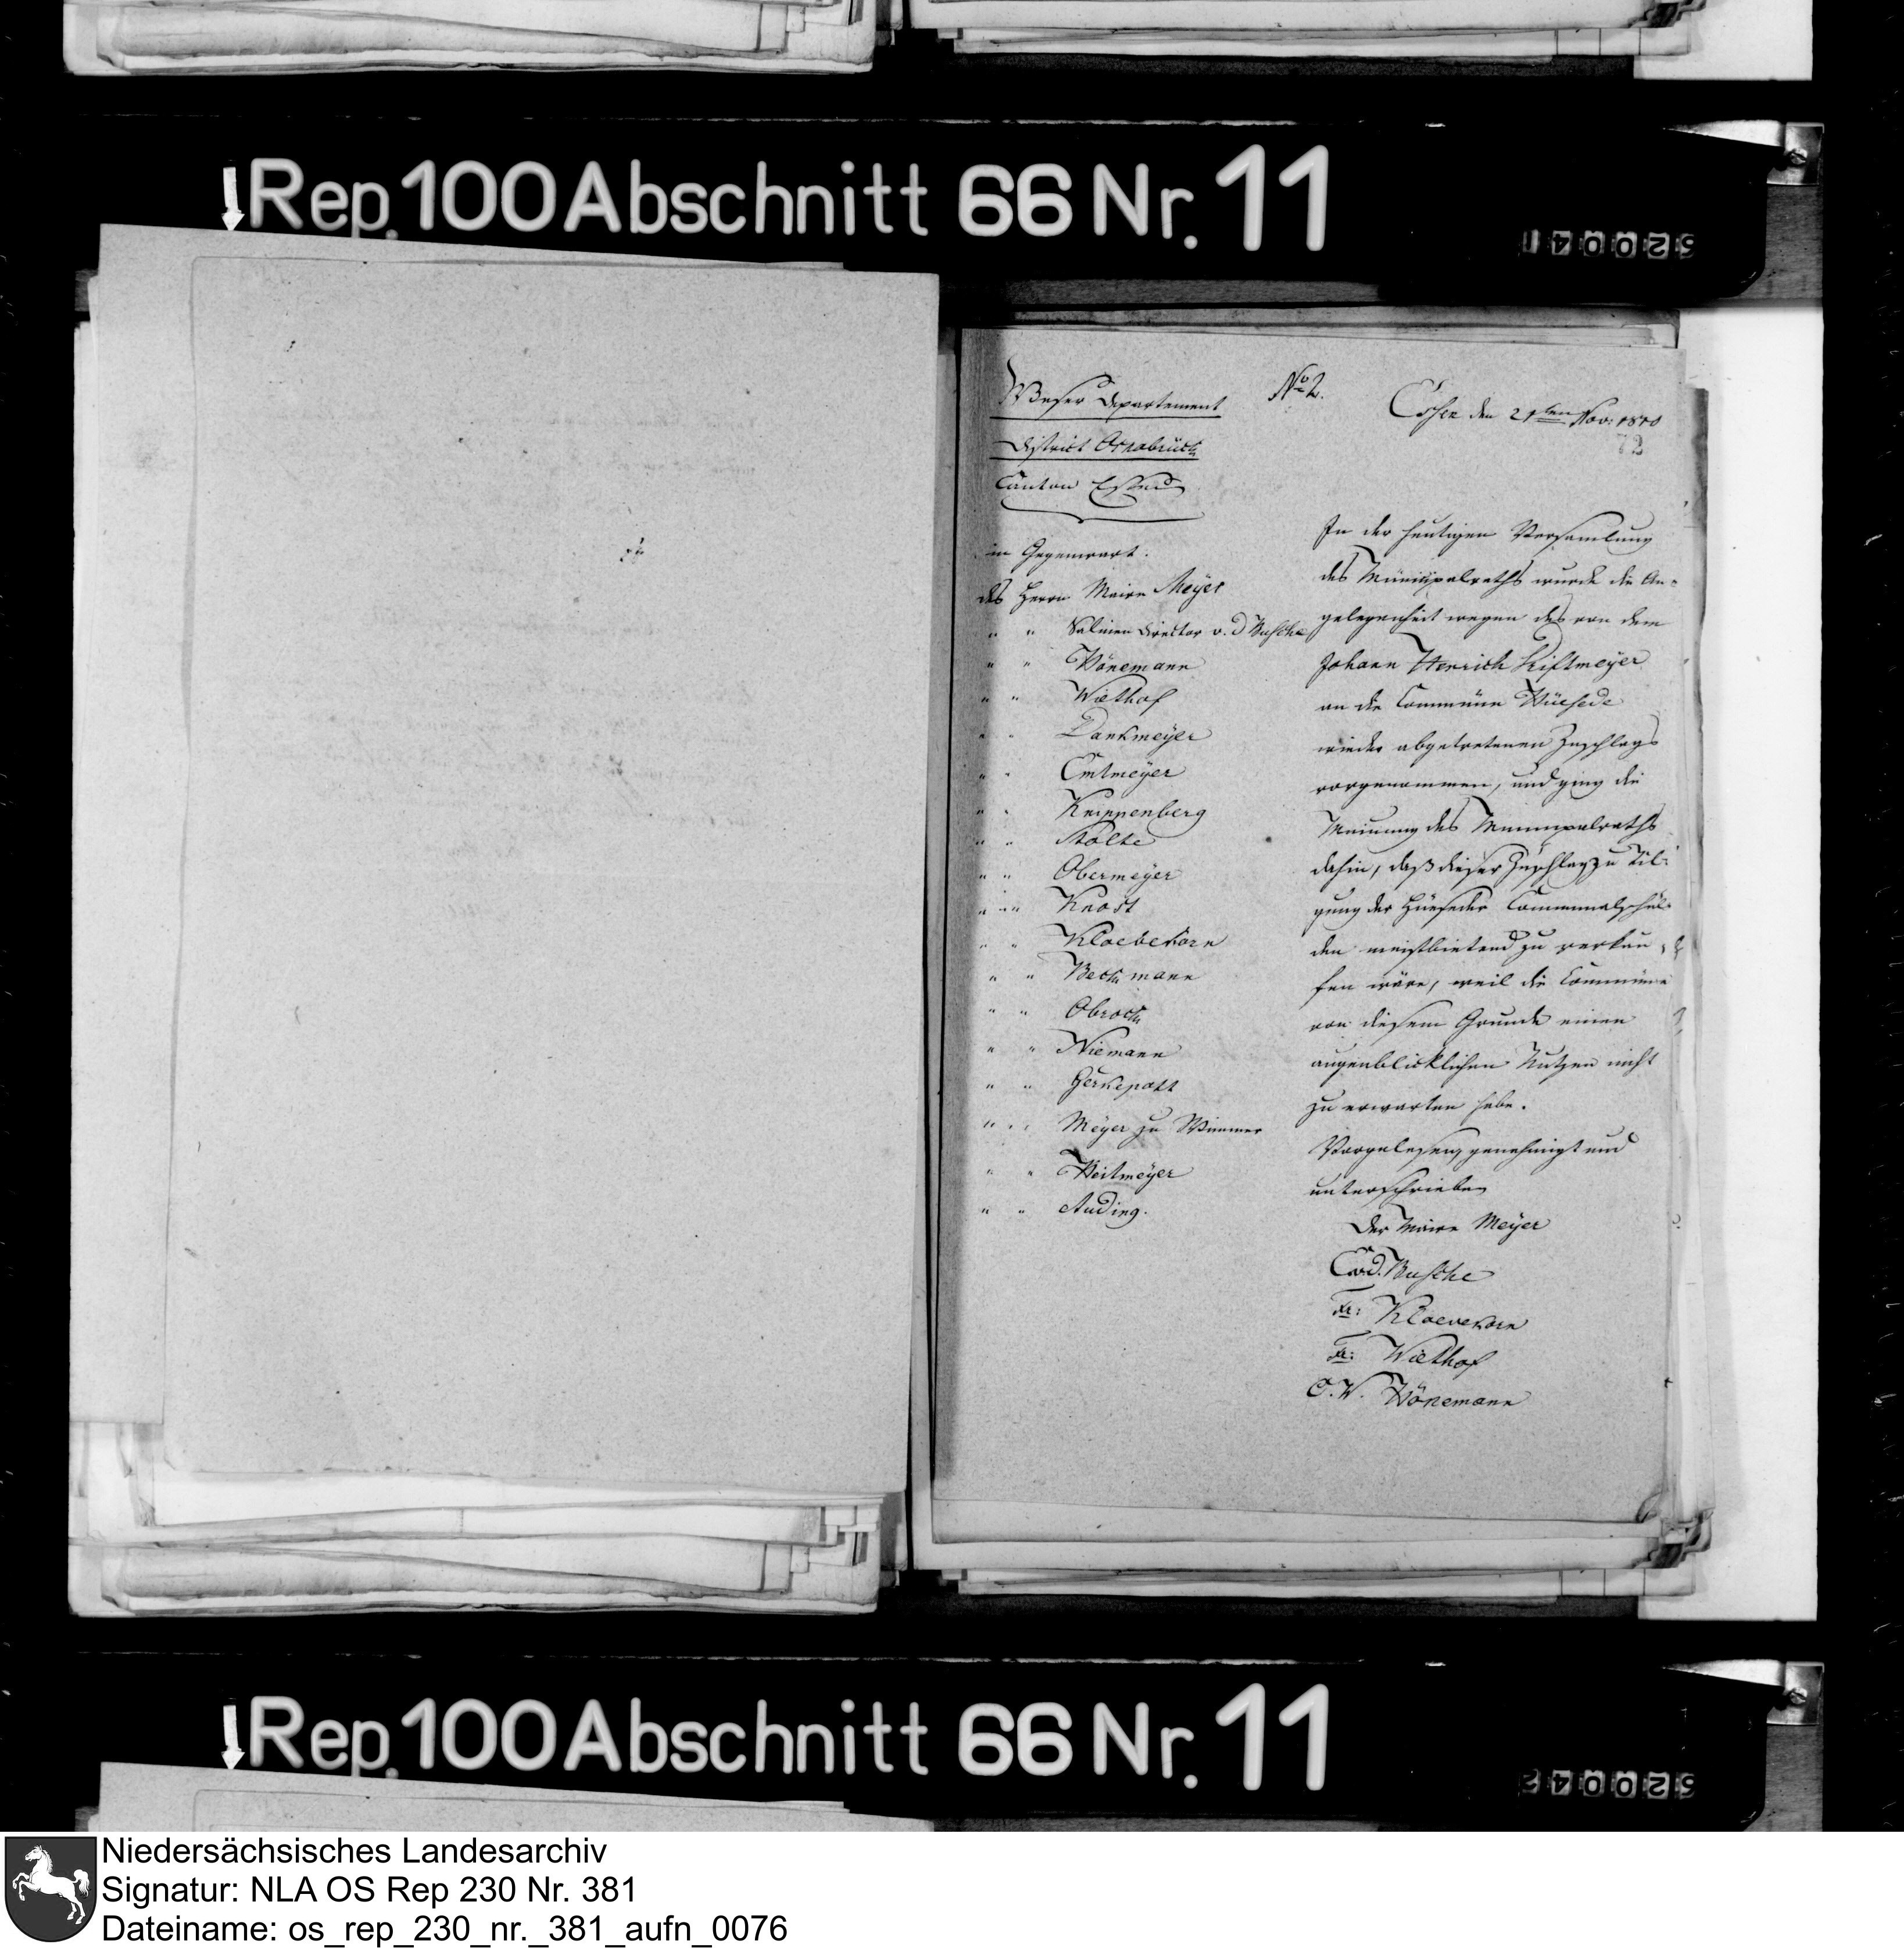 Rep. 100 Abschnitt 66 Nr. 11
Weser Departement
District Osnabrück
Canton Essen
No 2.
Essen den 21ten Nov. 1810
72
in Gegenwart.
des Herrn Maire Meyer
" " Salinen Director v. d Busche
" " Hönemann
" " Wiethof
" " Dankmeyer
" " Emtmeyer
" " Knippenberg
" " Stolte
" " Obermeyer
" " Knost
" " Kloevekorn
" " Beckmann
" " Obrock
" " Niemann
" " Gerkepott
" " Meyer zu Wimmer
" " Heitmeyer
" " Auding.
In der heutigen Versamlung
des Municipalraths wurde die An-
gelegenheit wegen des von dem
Johann Henrich Kiftmeyer
an die Commüne Hüsede
wieder abgetretenen Zuschlags
vorgenommen, und ging die
Meinung des Municipalraths
dahin, daß dieser Zuschlag zu Til-
gung der Hüseder Communalschul-
den meistbietend zu verkau-
fen wäre, weil die Commüne
von diesem Grunde einen
augenblicklichen Nutzen nicht
zu erwarten habe.
Vorgelesen, genehmigt und
unterschrieben
Der Maire Meyer
C. v. d. Busche
Fr: Kloevekorn
Fr: Wiethof
C. W. Hönemann
Rep. 100 Abschnitt 66 Nr. 11
Niedersächsisches Landesarchiv
Signatur: NLA OS Rep 230 Nr. 381
Dateiname: os_rep_230_nr._381_aufn_0076